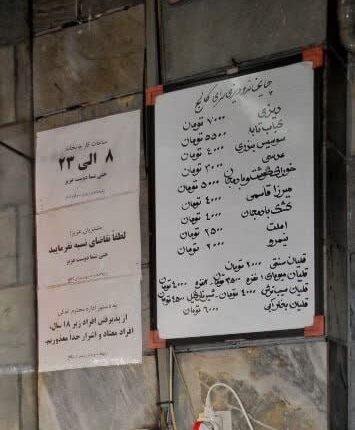 ساعات کار چایخانه
۸ الی ۲۳
حتی شما دوست عزیز
مشتریان عزیز!
لطفاً تقاضای نسیه نفرمایید
حتی شما دوست عزیز
به دستور اداره محترم اماکن
از پذیرفتن افراد زیر ۱۸ سال،
افراد معتاد و اشرار جدا معذوریم.
دیزی ۷۰۰۰ تومان
کباب تابه ۵۵۰۰ تومان
سوسیس بندری ۴۰۰۰ تومان
عدسی ۳۰۰۰ تومان
خوراک بادمجان ۵۰۰۰ تومان
میرزا قاسمی ۴۰۰۰ تومان
کشک بادمجان ۴۰۰۰ تومان
املت ۲۵۰۰ تومان
نیمرو ۲۰۰۰ تومان
قلیان سنتی ۲۰۰۰ تومان
قلیان میوه‌ای نعنا ۳۵۰۰ تومان ۴۰۰۰ تومان
قلیان ۴۰۰۰ تومان ۴۵۰۰ تومان
قلیان ۶۰۰۰ تومان